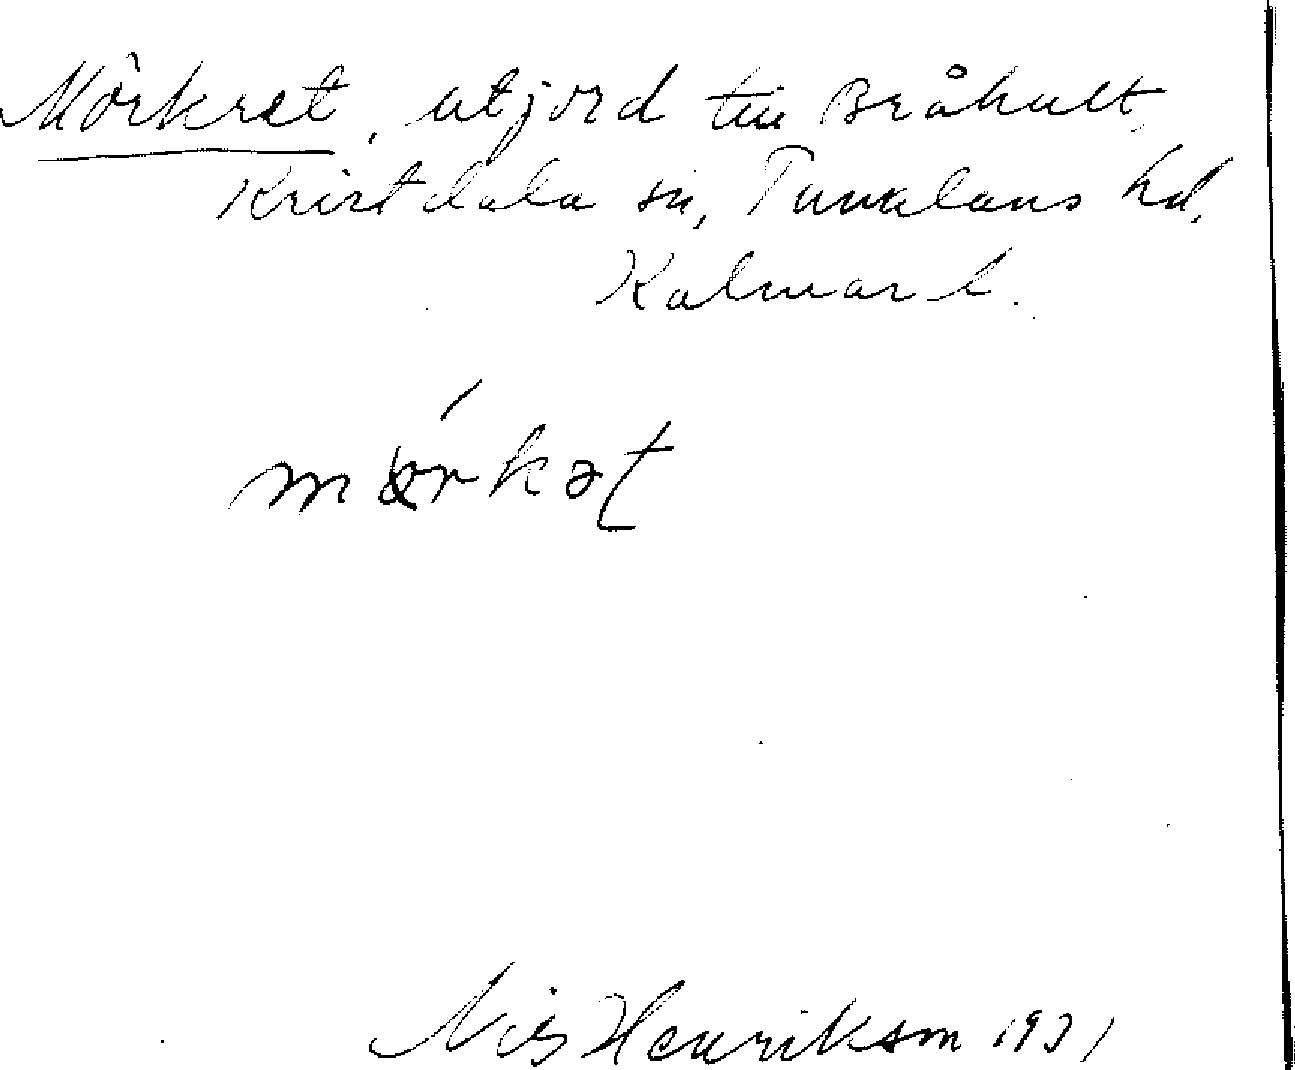 Mörkret, utjord till Bråhult,
Kristdala sn, Tunaläns hd,
Kalmar l.
mörkət
Nils Henrikson 1931